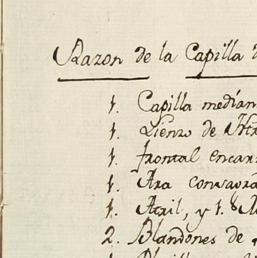 Razon de la Capilla
1. Capilla median
1. Lienzo de
1. frontal encar
1. Ara consagra
1. Atril, y 1.
2. Blandones de